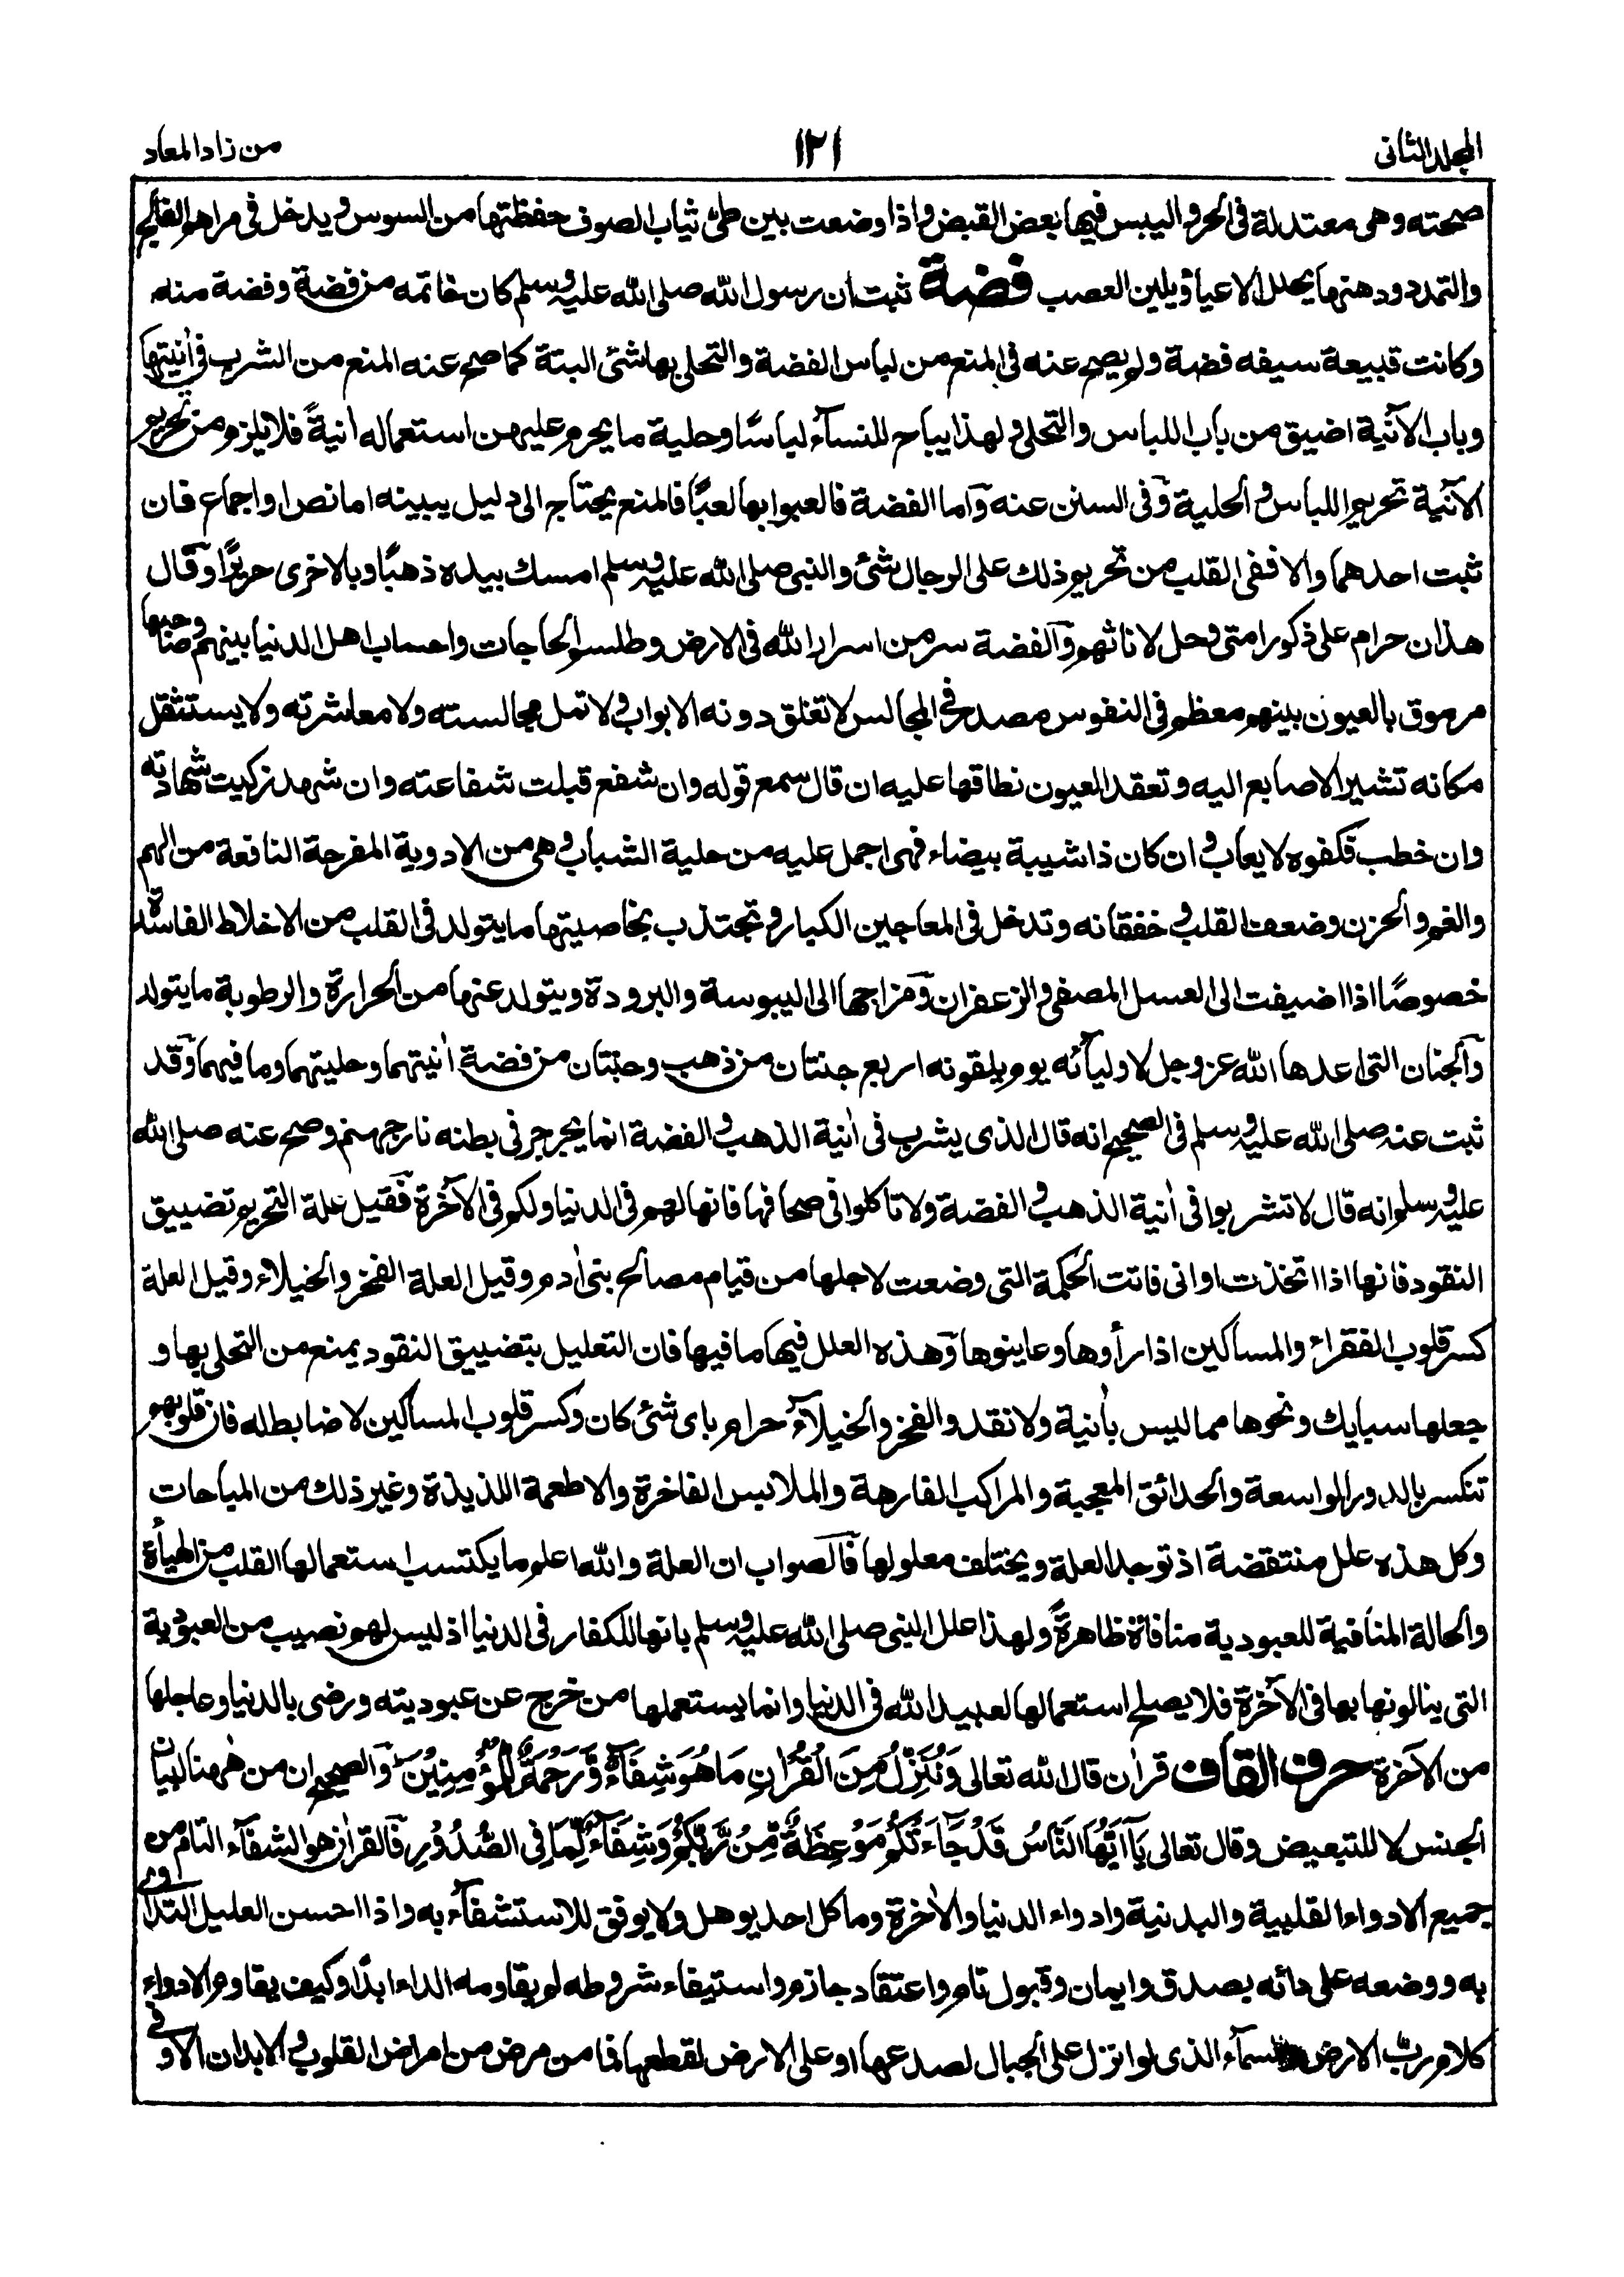 المجلد الثانی
١٢١
من زاد المعاد
صحته وهی معتدلة فی الحر والیبس فیها بعض القبض واذا وضعت بین طی ثیاب الصوف حفظتها من السوس ویدخل فی مراهم الفالج
والتمدد ودهنها یحلل الاعیاء ویلین العصب فضة ثبت ان رسول الله صلی الله علیه وسلم کان خاتمه من فضة وفضة منه
وکانت قبیعة سیفه فضة ولم یصح عنه فی المنع من لباس الفضة والتحلی بها شئ البتة کما صح عنه المنع من الشرب فی اٰنیتها
وباب الآنیة اضیق من باب اللباس والتحلی ولهذا یباح للنسآء لباسًا وحلیة ما یحرم علیهن استعماله اٰنیةً فلا یلزم من تحریم
الآنیة تحریم اللباس والحلیة وفی السنن عنه واما الفضة فالعبوا بها لعبًا فالمنع یحتاج الی دلیل یبینه اما نص او اجماع فان
ثبت احدهما والا ففی القلب من تحریم ذلك علی الرجال شئ والنبی صلی الله علیه وسلم امسك بیده ذهبًا وبالاخری حریرًا وقال
هذان حرام علی ذکور امتی وحل لاناثهم والفضة سر من اسرار الله فی الارض وطلسم الحاجات واحساب اهل الدنیا بینهم وصاحبها
مرموق بالعیون بینهم معظم فی النفوس مصدر فی المجالس لا تغلق دونه الابواب ولا تمل مجالسته ولا معاشرته ولا یستثقل
مکانه تشیر الاصابع الیه وتعقد العیون نطاقها علیه ان قال سمع قوله وان شفع قبلت شفاعته وان شهد زکیت شهادته
وان خطب فکفوه لا یعاب وان کان ذا شیبة بیضاء فهی اجمل علیه من حلیة الشباب وهی من الادویة المفرحة النافعة من الهم
والغم والحزن وضعف القلب وخفقانه وتدخل فی المعاجین الکبار وتجتذب بخاصیتها ما یتولد فی القلب من الاخلاط الفاسدة
خصوصًا اذا اضیفت الی العسل المصفی والزعفران ومزاجها الی الیبوسة والبرودة ویتولد عنها من الحرارة والرطوبة ما یتولد
والجنان التی اعدها الله عز وجل لاولیآئه یوم یلقونه اربع جنتان من ذهب وجنتان من فضة اٰنیتهما وحلیتهما وما فیهما وقد
ثبت عنه صلی الله علیه وسلم فی الصحیح انه قال الذی یشرب فی اٰنیة الذهب والفضة انما یجرجر فی بطنه نار جهنم وصح عنه صلی الله
علیه وسلم انه قال لا تشربوا فی اٰنیة الذهب والفضة ولا تاکلوا فی صحافها فانها لهم فی الدنیا ولکم فی الآخرة فقیل علة التحریم تضییق
النقود فانها اذا اتخذت اوانی فاتت الحکمة التی وضعت لاجلها من قیام مصالح بنی اٰدم وقیل العلة الفخر والخیلاء وقیل العلة
کسر قلوب الفقراء والمساکین اذا رأوها وعاینوها وهذه العلل فیها ما فیها فان التعلیل بتضییق النقود یمنع من التحلی بها و
جعلها سبایك ونحوها مما لیس بأنیة ولا نقد والفخر والخیلآء حرام بای شئ کان وکسر قلوب المساکین لا ضابط له فان قلوبهم
تنکسر بالدور الواسعة والحدائق المعجبة والمراکب الفارهة والملابس الفاخرة والاطعمة اللذیذة وغیر ذلك من المباحات
وکل هذه علل منتقضة اذ توجد العلة ویختلف معلولها فالصواب ان العلة والله اعلم ما یکتسب استعمالها القلب من الهیأة
والحالة المنافیة للعبودیة منافاة ظاهرةً ولهذا علل النبی صلی الله علیه وسلم بانها للکفار فی الدنیا اذ لیس لهم نصیب من العبودیة
التی ینالونها بها فی الآخرة فلا یصلح استعمالها لعبید الله فی الدنیا وانما یستعملها من خرج عن عبودیته ورضی بالدنیا وعاجلها
من الآخرة حرف القاف قراٰن قال الله تعالی وَنُنَزِّلُ مِنَ الْقُرْاٰنِ مَا هُوَ شِفَآءٌ وَّرَحْمَةٌ لِّلْمُؤْمِنِیْنَ والصحیح ان من هٰهنا لبیان
الجنس لا للتبعیض وقال تعالی یَآ اَیُّهَا النَّاسُ قَدْ جَآءَتْکُمْ مَوْعِظَةٌ مِّنْ رَّبِّکُمْ وَشِفَآءٌ لِّمَا فِی الصُّدُوْرِ فالقراٰن هو الشفآء التام من
جمیع الادواء القلبیة والبدنیة وادواء الدنیا والاٰخرة وما کل احد یوهل ولا یوفق للاستشفآء به واذا احسن العلیل التداوی
به ووضعه علی دائه بصدق وایمان وقبول تام واعتقاد جازم واستیفاء شروطه لم یقاومه الداء ابدًا وکیف یقاوم الادواء
کلام رب الارض والسمآء الذی لو انزل علی الجبال لصدعها او علی الارض لقطعها فما من مرض من امراض القلوب والابدان الا وفی